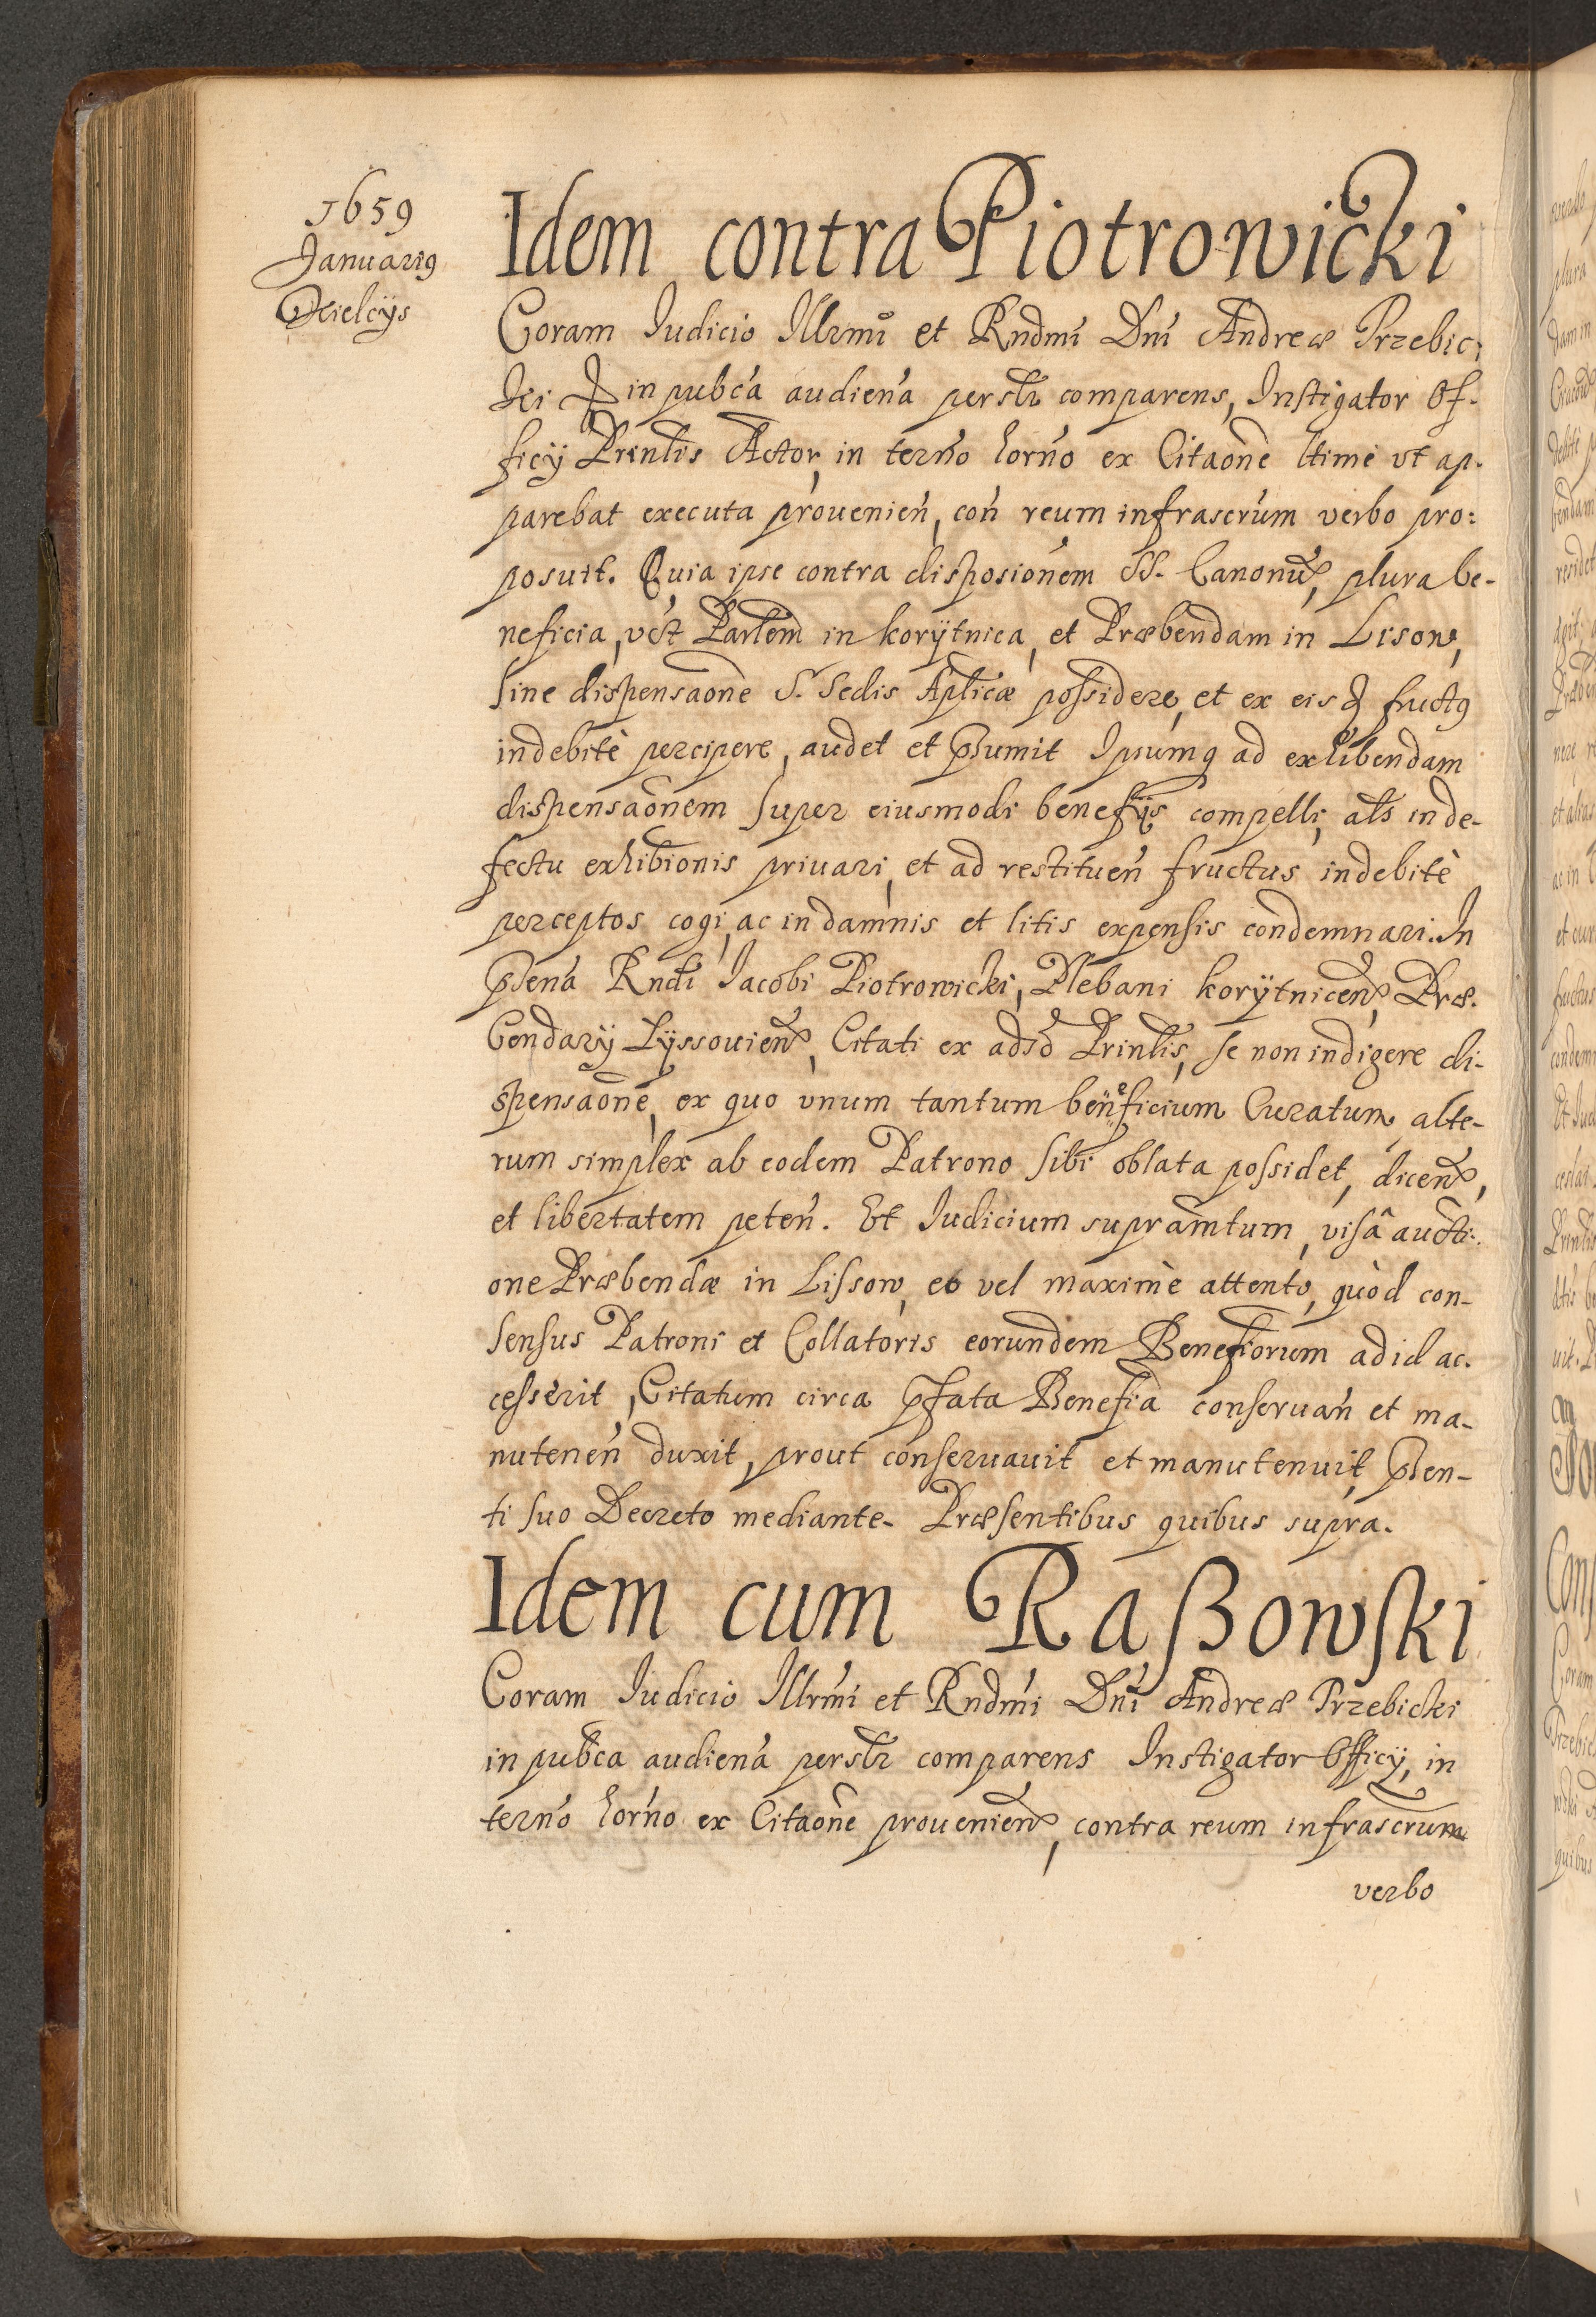 1659
Januarig
Kielcijs
Idem contra Piotrowicki
Coram Judicio Illrmi et Rndmi Dni Andreæ Przebic:
ki in pubca audiena persltr comparens, Instigator Of-
ficij Prinlis Actor, in terno horno ex Citaone ltime vt ap-
parebat executa prouenien, con reum infrascrum verbo pro:
posuit. Quia ipse contra disposionem SS. Canonu, plura be-
neficia, vct Parlem in korytnica, et Præbendam in Lisow,
sine dispensaone S. Sedis Aplicæ possidere, et ex eisd fructg
indebitè percipere, audet et psumit Ipsumq ad exhibendam
dispensaonem super eiusmodi benefijs compelli, als in de-
fectu exhibionis priuari, et ad restituen fructus indebitè
perceptos cogi, ac in damnis et litis expensis condemnari. In
psena Rndi Jacobi Piotrowicki, Plebani korytnicen, Præ-
bendarij Lyssouien, Citati ex adso Prinlis, se non indigere di-
spensaone, ex quo vnum tantum beneficium Curatum, alte-
rum simplex ab eodem Patrono sibi oblata possidet, dicen,
et libertatem peten. Et Judicium supramtum, visâ aucti:
one Præbendæ in Lissow, eo vel maximè attento, quòd con-
sensus Patroni et Collatoris eorundem Benefiorum ad id ac-
cesserit, Citatum circa pfata Benefia conseruan et ma-
nutenen duxit, prout conseruauit et manutenuit, psen-
ti suo Decreto mediante. Præsentibus quibus supra.
Idem cum Raßowski
Coram Judicio Illrmi et Rndmi Dni Andreæ Przebicki
in pubca audiena persltr comparens Instigator Officij, in
terno horno ex Citaone prouenien, contra reum infrascrum
verbo